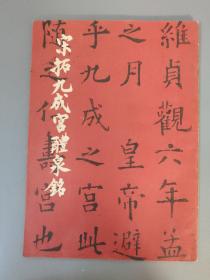 宋拓九成宮醴泉銘
維貞觀六年孟
之月 皇帝避
乎九成之宮此
隨之仁壽宮也